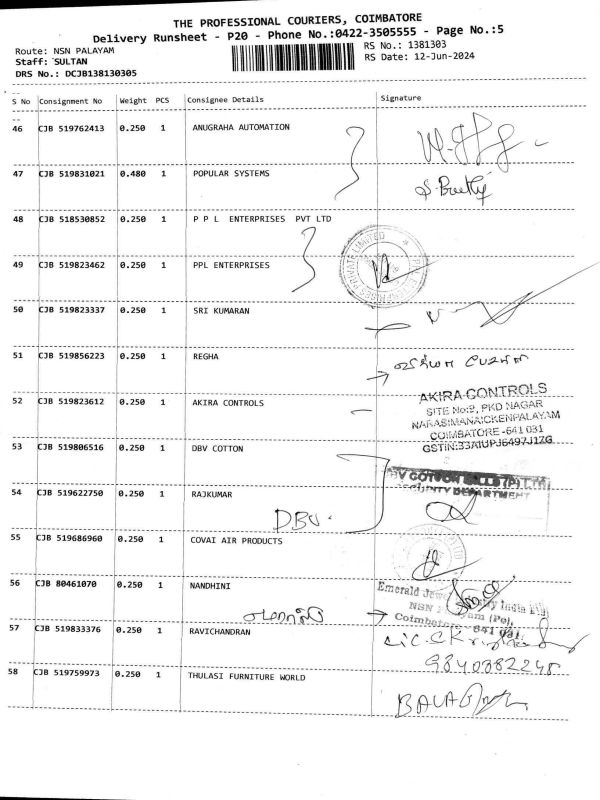 THE PROFESSIONAL COURIERS, COIMBATORE
Delivery Runsheet - P20 - Phone No.:0422-3505555 - Page No.:5
Route: NSN PALAYAM
RS No.: 1381303
Staff: SULTAN
RS Date: 12-Jun-2024
DRS No.: DCJB138130305
S No Consignment No Weight PCS Consignee Details Signature
46 CJB 519762413 0.250 1 ANUGRAHA AUTOMATION
47 CJB 519831021 0.480 1 POPULAR SYSTEMS
48 CJB 518530852 0.250 1 P P L ENTERPRISES PVT LTD
49 CJB 519823462 0.250 1 PPL ENTERPRISES
50 CJB 519823337 0.250 1 SRI KUMARAN
51 CJB 519856223 0.250 1 REGHA
52 CJB 519823612 0.250 1 AKIRA CONTROLS
AKIRA CONTROLS
SITE No:9, PKD NAGAR
NARASIMANAICKENPALAYAM
COIMBATORE - 641 031
GSTIN:33AIUPJ6497J1ZG
53 CJB 519806516 0.250 1 DBV COTTON
COTTON MILLS (P) LTD
SECURITY DEPARTMENT
54 CJB 519622750 0.250 1 RAJKUMAR
DBV.
55 CJB 519686960 0.250 1 COVAI AIR PRODUCTS
56 CJB 80461070 0.250 1 NANDHINI
Emerald India
NSN (Po),
Coimbatore - 641 031
57 CJB 519833376 0.250 1 RAVICHANDRAN
9840382248
58 CJB 519759973 0.250 1 THULASI FURNITURE WORLD